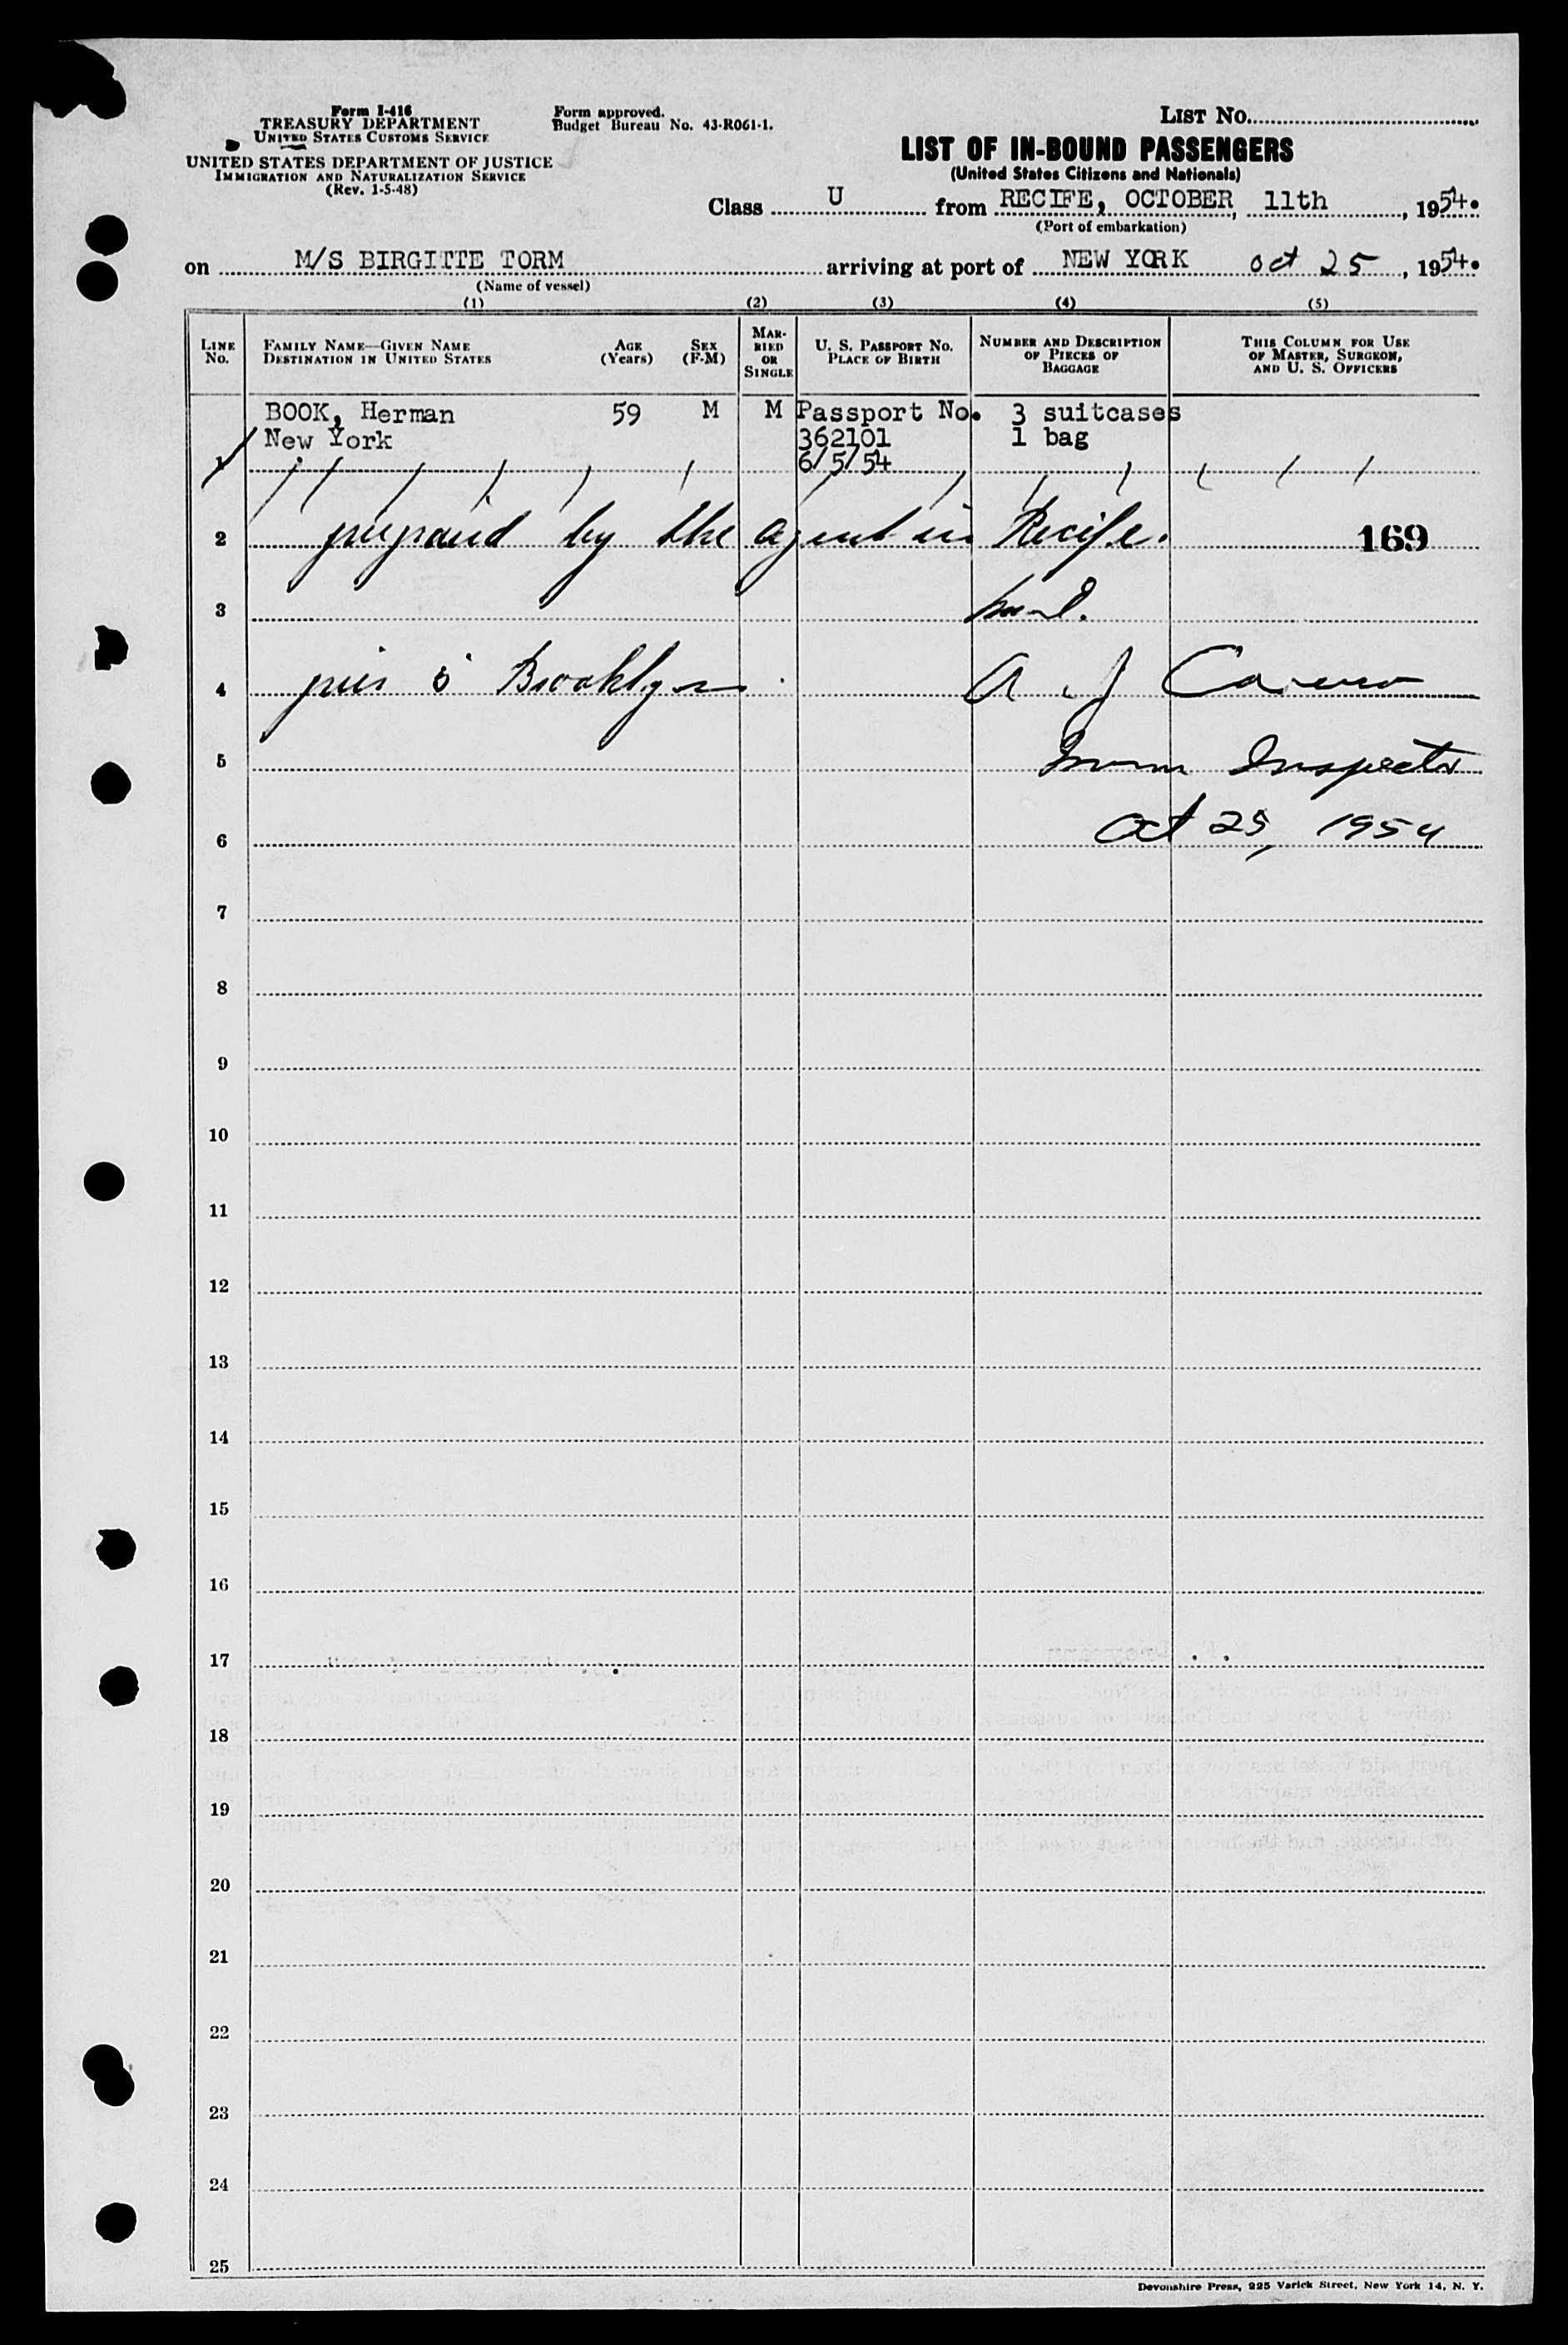 Form I-416
TREASURY DEPARTMENT
UNITED STATES CUSTOMS SERVICE
UNITED STATES DEPARTMENT OF JUSTICE
IMMIGRATION AND NATURALIZATION SERVICE
(Rev. 1-5-48)
Form approved.
Budget Bureau No. 43-R061-1.
LIST No.
LIST OF IN-BOUND PASSENGERS
(United States Citizens and Nationals)
Class U from RECIFE, OCTOBER, 11th, 1954.
(Port of embarkation)
on M/S BIRGITTE TORM arriving at port of NEW YORK Oct 25, 1954.
(Name of vessel)
(1) (2) (3) (4) (5)
LINE No.
FAMILY NAME—GIVEN NAME
DESTINATION IN UNITED STATES
AGE
(Years)
SEX
(F-M)
MARRIED
OR
SINGLE
U. S. PASSPORT No.
PLACE OF BIRTH
NUMBER AND DESCRIPTION
OF PIECES OF
BAGGAGE
THIS COLUMN FOR USE
OF MASTER, SURGEON,
AND U. S. OFFICERS
BOOK, Herman 59 M M Passport No. 3 suitcases
New York 362101 1 bag
1 6/5/54
2 prepared by the agent in Recife. 169
3
4 pier 6 Brooklyn A J
5 Immn Inspector
6 Oct 25, 1954
7
8
9
10
11
12
13
14
15
16
17
18
19
20
21
22
23
24
25
Devonshire Press, 225 Varick Street, New York 14, N. Y.